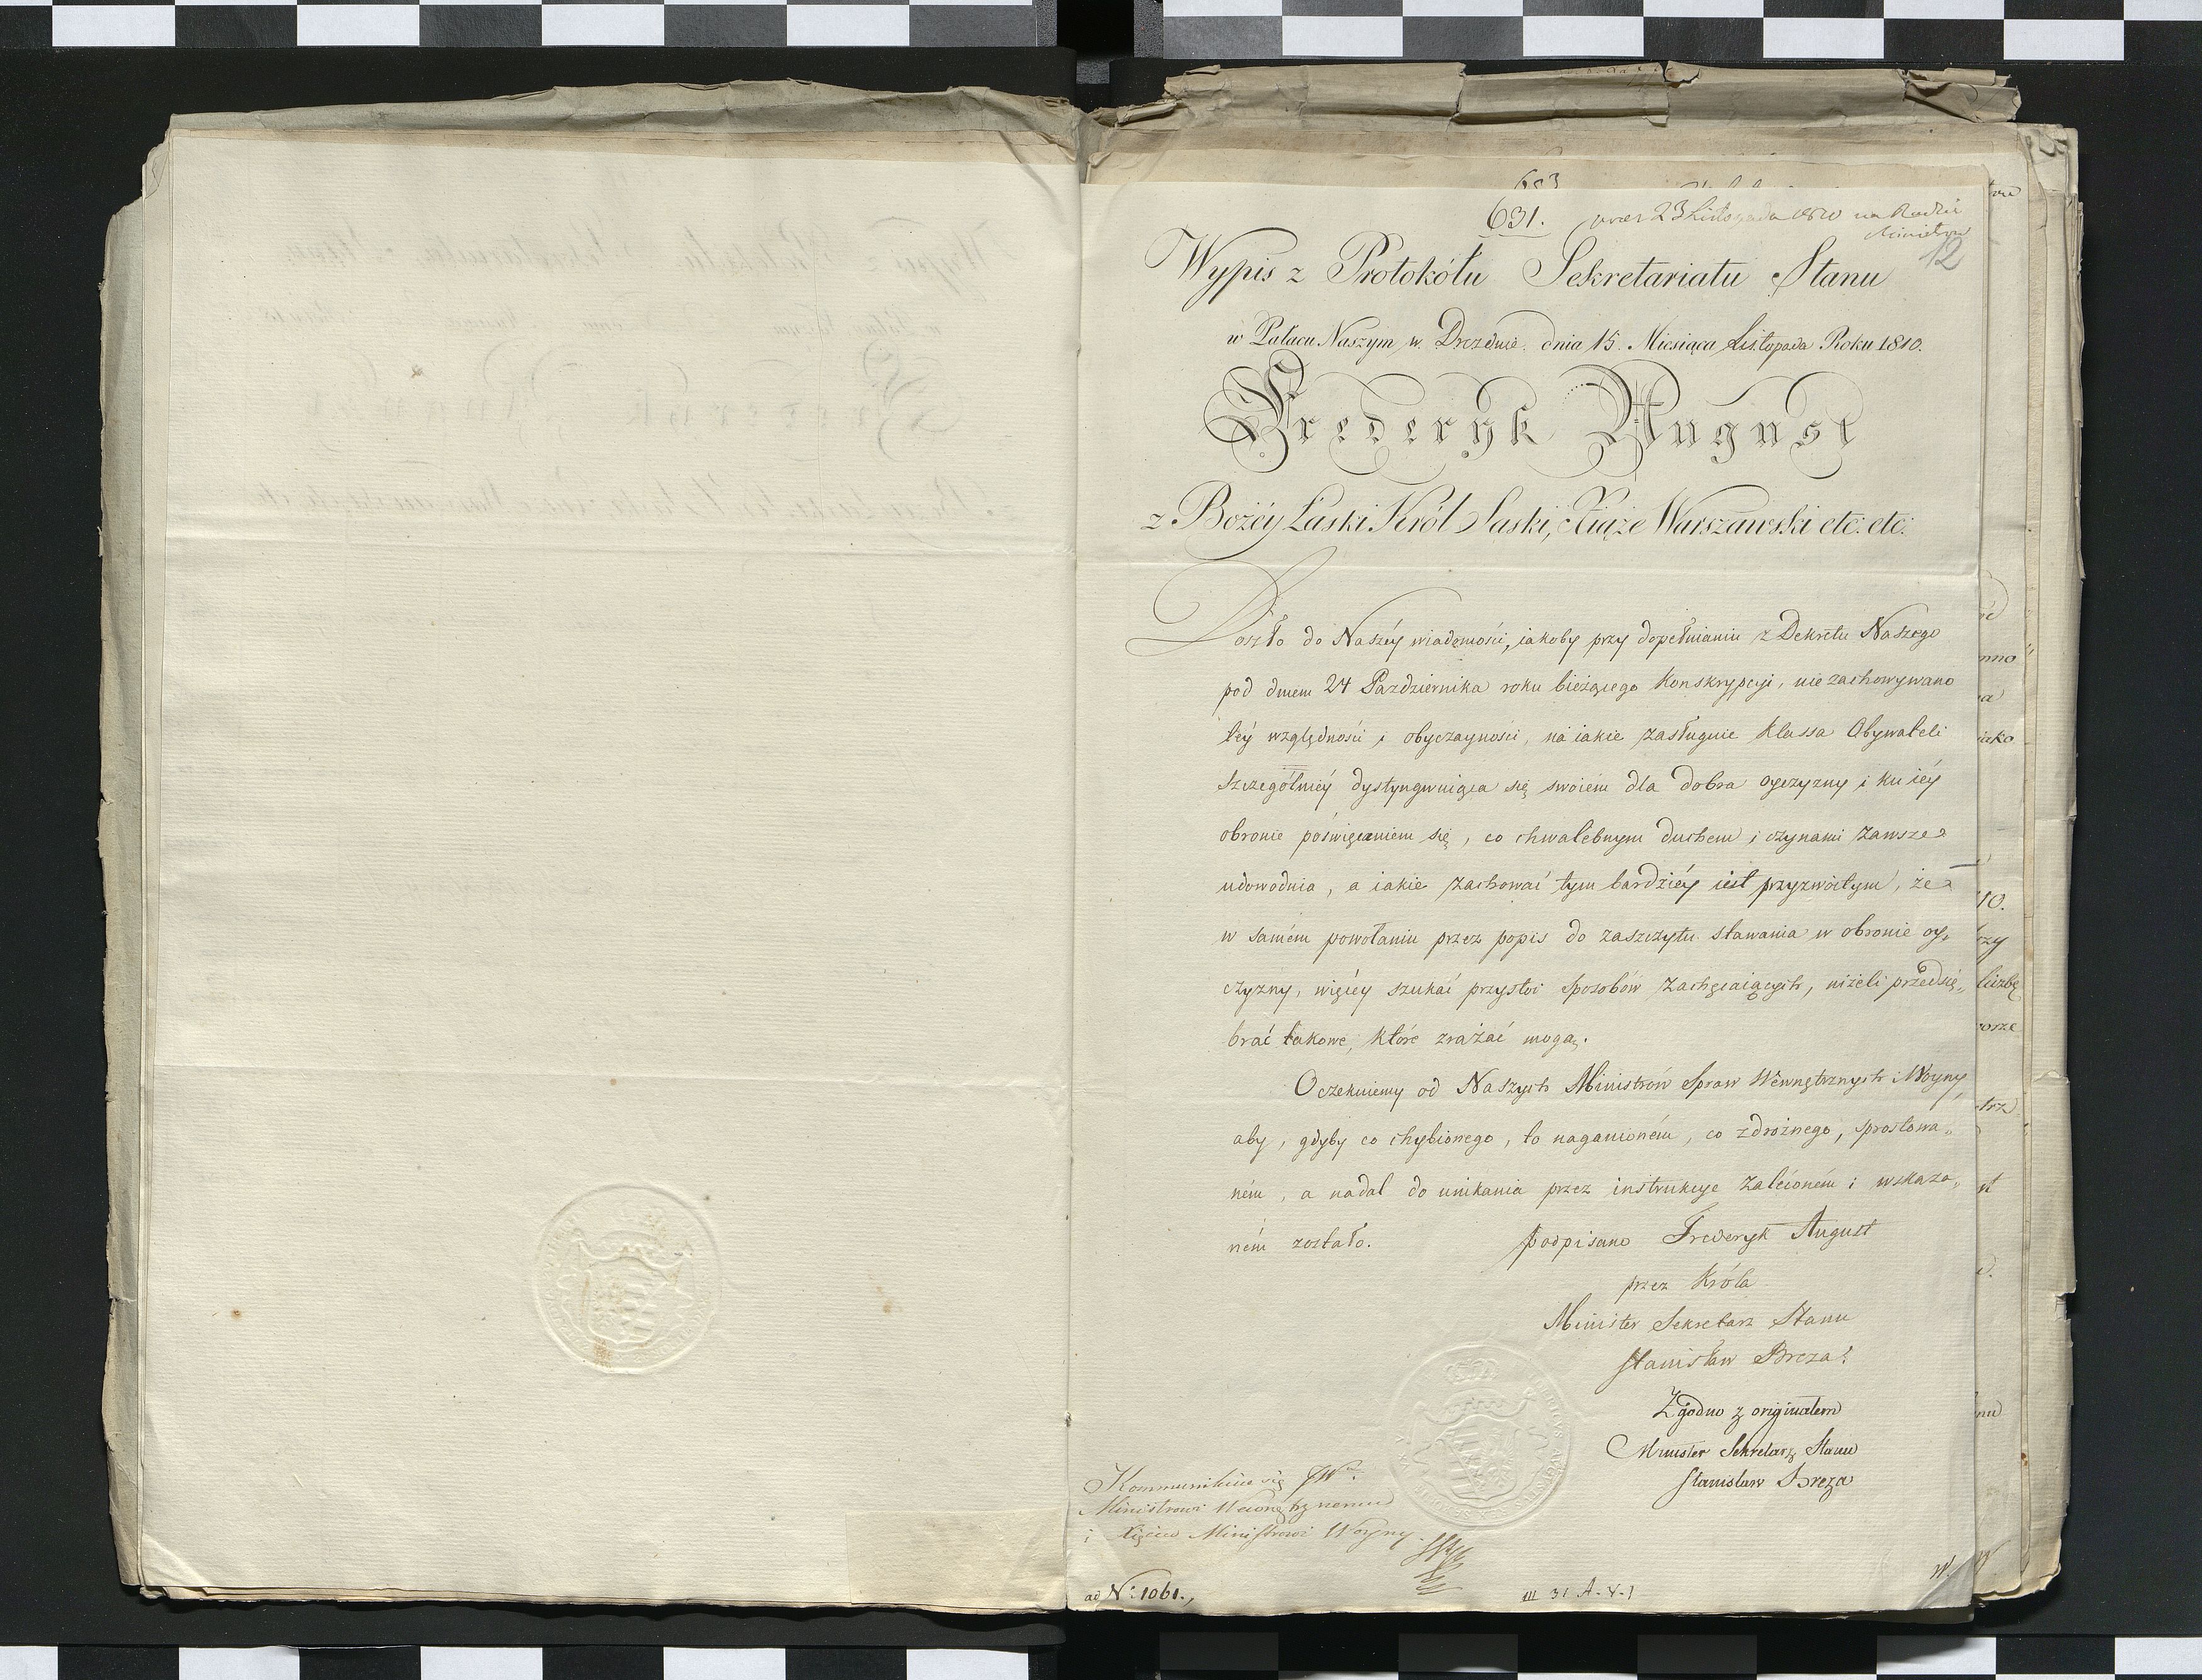 631. 23 Listopada 1810 na Radzie
12
Wypis z Protokółu Sekretariatu Stanu
w Pałacu Naszym w Dreźnie dnia 15. Miesiąca Listopada Roku 1810.
Frederyk August
z Bożéy Łaski Król Saski, Xiąże Warszawski etc: etc:
Doszło do Naszéy wiadomości, iakoby przy dopełnianiu z Dekretu Naszego
pod dniem 24 Pazdziernika roku bieżącego Konskrypcyi, nie zachowywano
téy względności i obyczayności, na iakie zasługuie Klassa Obywateli
szczególniéy dystyngwuiąca się swoiém dla dobra oyczyzny i ku iéy
obronie poświęcaniem się, co chwalebnym duchem i czynami zawsze
udowodnia, a iakie zachować tym bardziéy iest przyzwoitym, że
w samém powołaniu przez popis do zaszczytu stawania w obronie oy„
czyzny, więcéy szukać przystoi sposobów zachęcaiących, niżeli przedsię„
brać takowe, które zrażać mogą.
Oczekuiemy od Naszych Ministrów Spraw Wewnętrznych i Woyny,
aby, gdyby co chybionego, to naganioném, co zdrożnego, sprostowa„
ném, a nadal do unikania przez instrukcye zaleconém i wskaza„
ném zostało. podpisano Frederyk August
przez Króla
Minister Sekretarz Stanu
Stanisław Breza
Zgodno z originałem
Minister Sekretarz Stanu
Stanisław Breza
Kommunikuie się JW.
Ministrowi Wewnętrznemu
i Xięciu Ministrowi Woyny
ad N: 1061.,
III 31 A-V-1